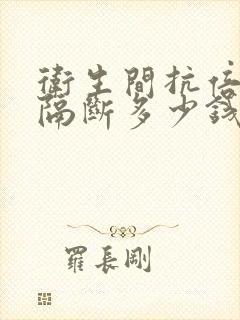 衛生間抗倍
隔斷多少錢
羅長剛